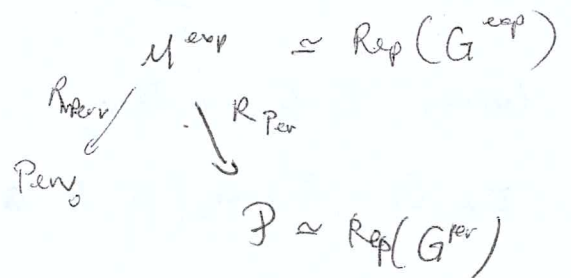 M^exp ≃ Rep(G^exp)
R_Perv R_Per
Perv_0
P ≃ Rep(G^per)